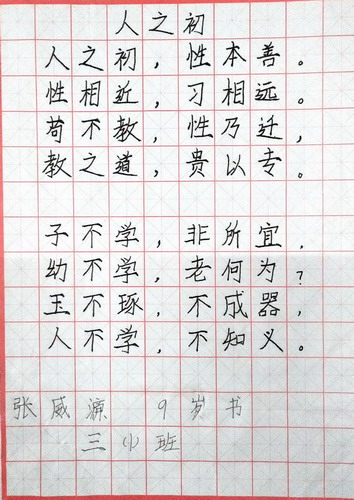 人之初
人之初，性本善。
性相近，习相远。
苟不教，性乃迁，
教之道，贵以专。
子不学，非所宜，
幼不学，老何为？
玉不琢，不成器，
人不学，不知义。
张威源 9岁书
三小班